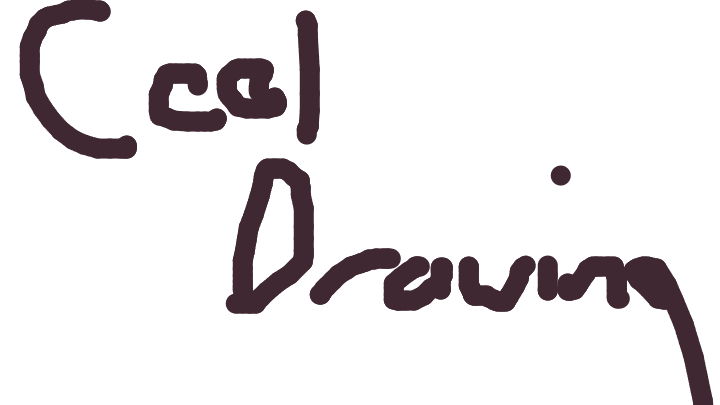 Cool
Drawing